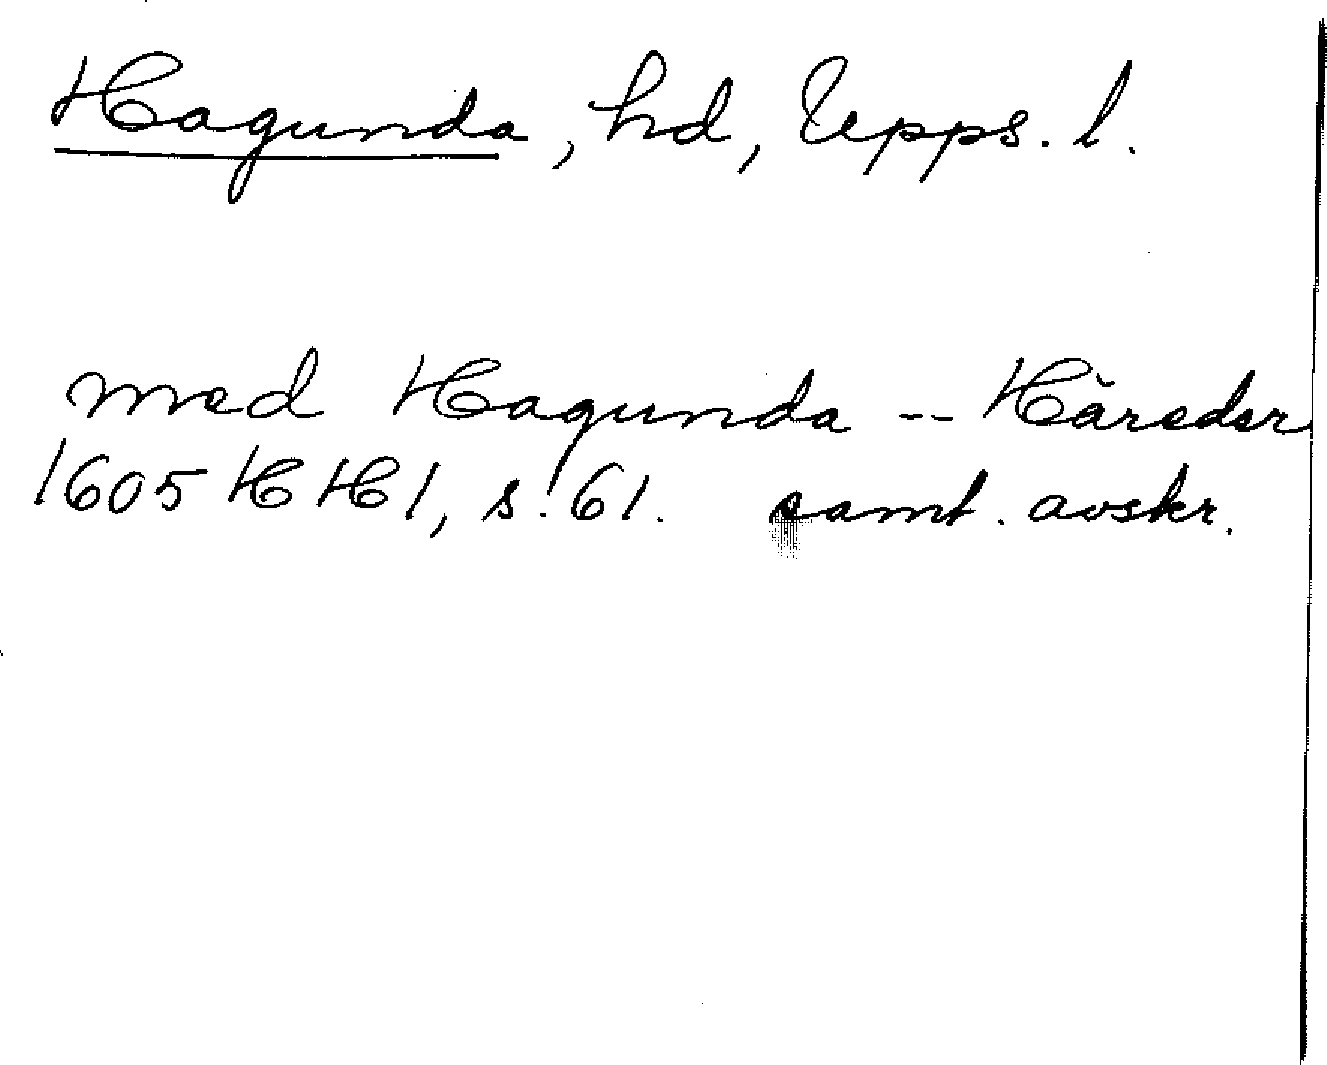 Hagunda, hd, Upps. l.
med Hagunda -- Häreder
1605 HH 1, s. 61. samt. avskr.